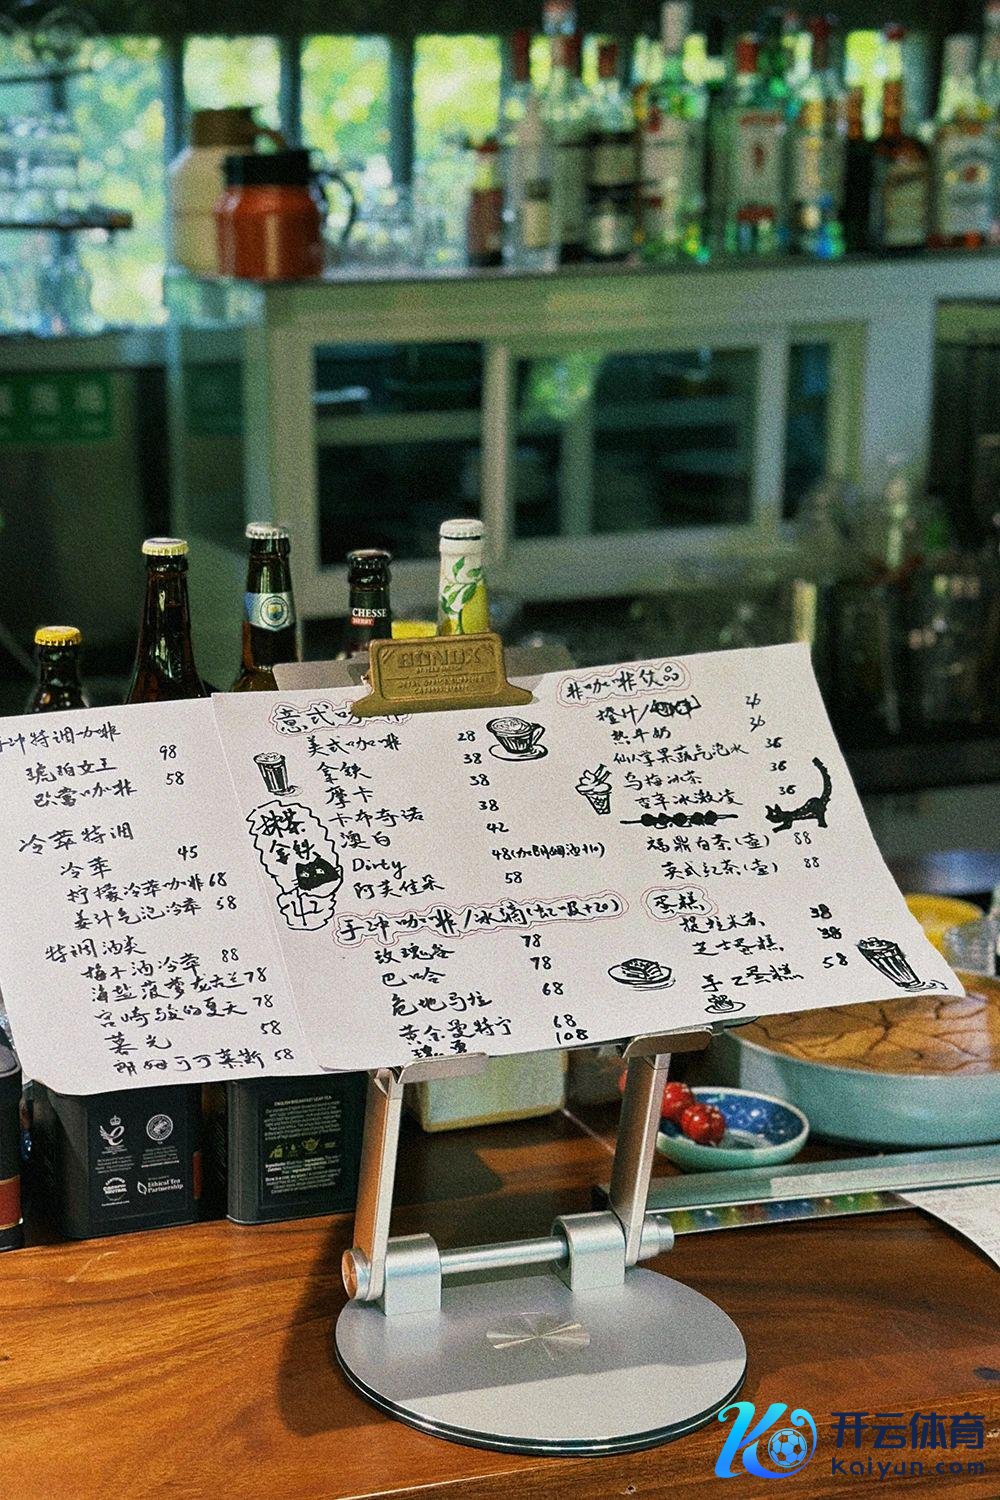 CHESSE
BERRY
BONOX
手冲特调咖啡
琥珀女王 98
巴黎咖啡 58
冷萃特调
冷萃 45
柠檬冷萃咖啡 68
姜汁气泡冷萃 58
特调酒类
梅子酒冷萃 88
海盐菠萝龙舌兰 78
宫崎骏的夏天 78
暮光 58
朗姆可可莱斯 58
意式咖啡
美式咖啡 28
拿铁 38
摩卡 38
卡布奇诺 38
澳白 42
Dirty 48(加朗姆酒+10)
阿芙佳朵 58
抹茶
拿铁
42
手冲咖啡/冰滴(虹吸+20)
玫瑰谷 78
巴哈 78
危地马拉 68
黄金曼特宁 68
瑰夏 108
非咖啡饮品
橙汁/ 36
热牛奶 36
仙人掌果蔬气泡水 36
乌梅冰茶 36
杏幸冰激凌 36
福鼎白茶(壶) 88
英式红茶(壶) 88
蛋糕
提拉米苏 38
芝士蛋糕 38
手工蛋糕 58
ENGLISH BREAKFAST LEAF TEA
Ethical Tea
Partnership
开云体育
kaiyun.com